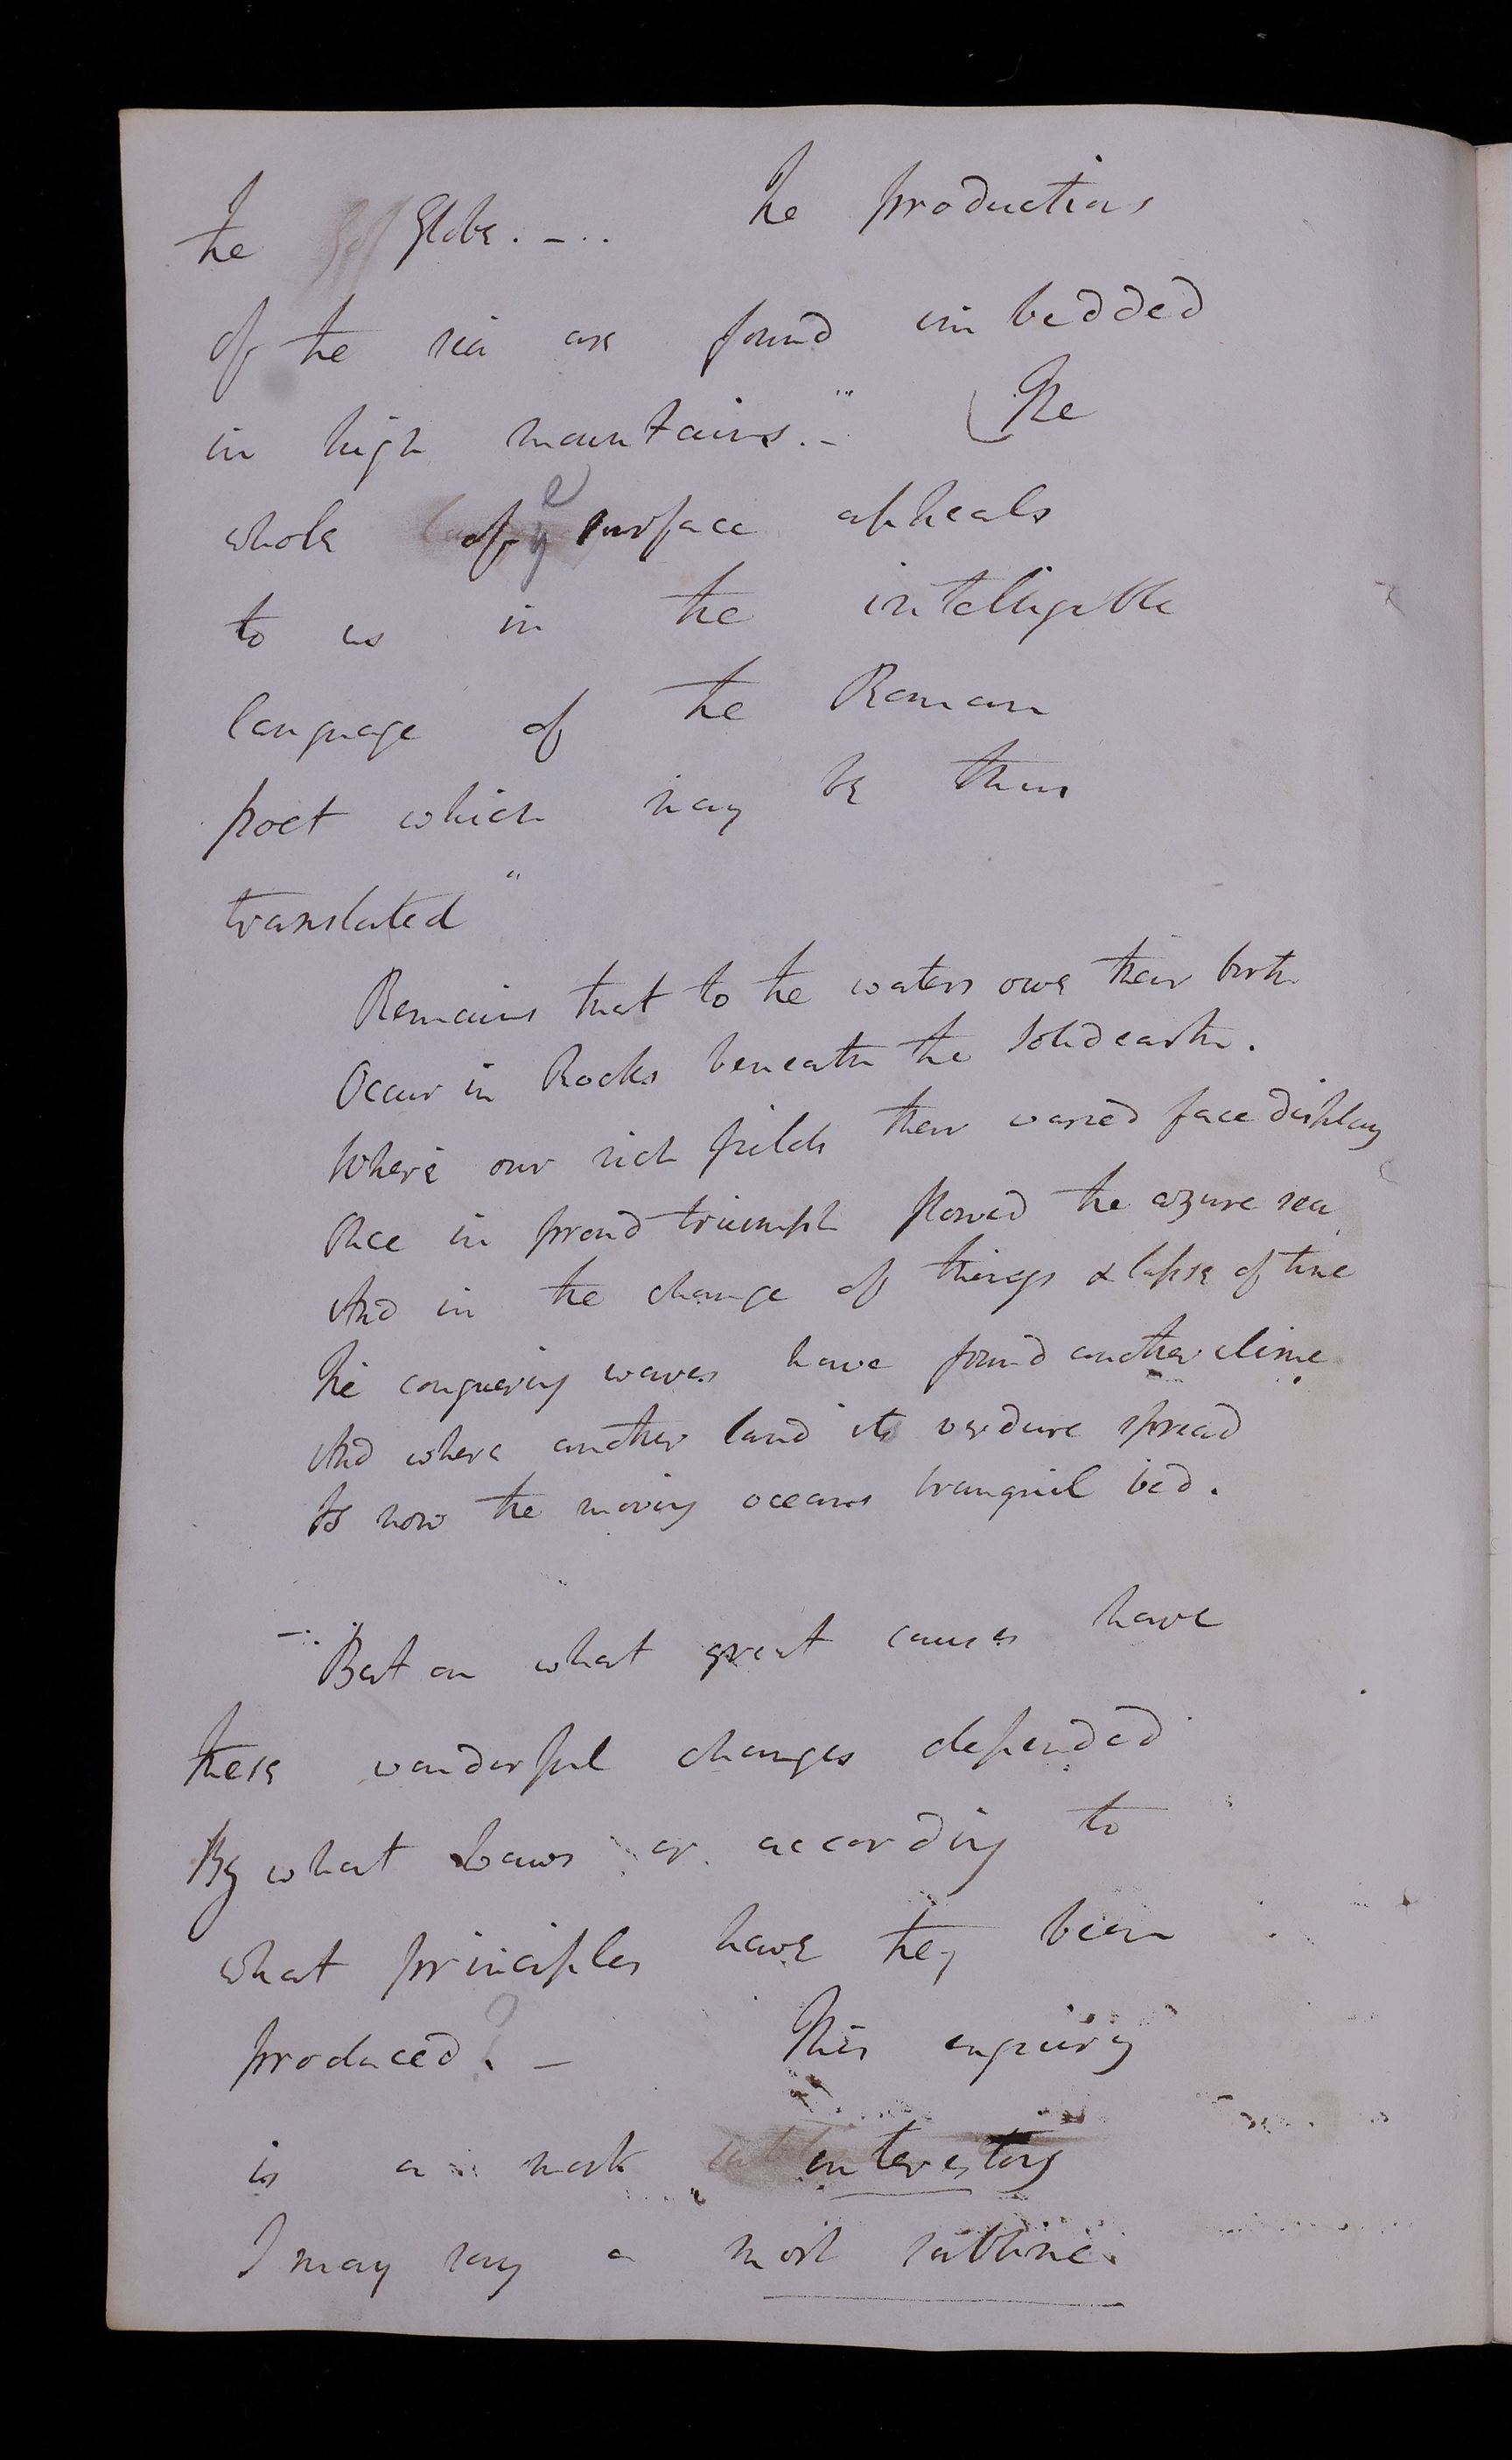 the Globe. - .. The productions
of the sea are found imbedded
in high mountains. - The
whole of ye surface appeals
to us in the intelligible
language of the Roman
poet which may be thus
translated "
Remains that to the waters owe their birth
Occur in Rocks beneath the solid earth.
Where our rich fields their varied face display
Once in proud triumph flowed the azure sea
And in the change of things & lapse of time
The conquering waves have found another clime.
And where another land its verdure spread
Is now the moving oceans tranquil bed.
-:. But on what great causes have
these wonderful changes depended
By what Laws or according to
what principles have they been
produced? - This enquiry
is a most interesting
I may say a most sublime.